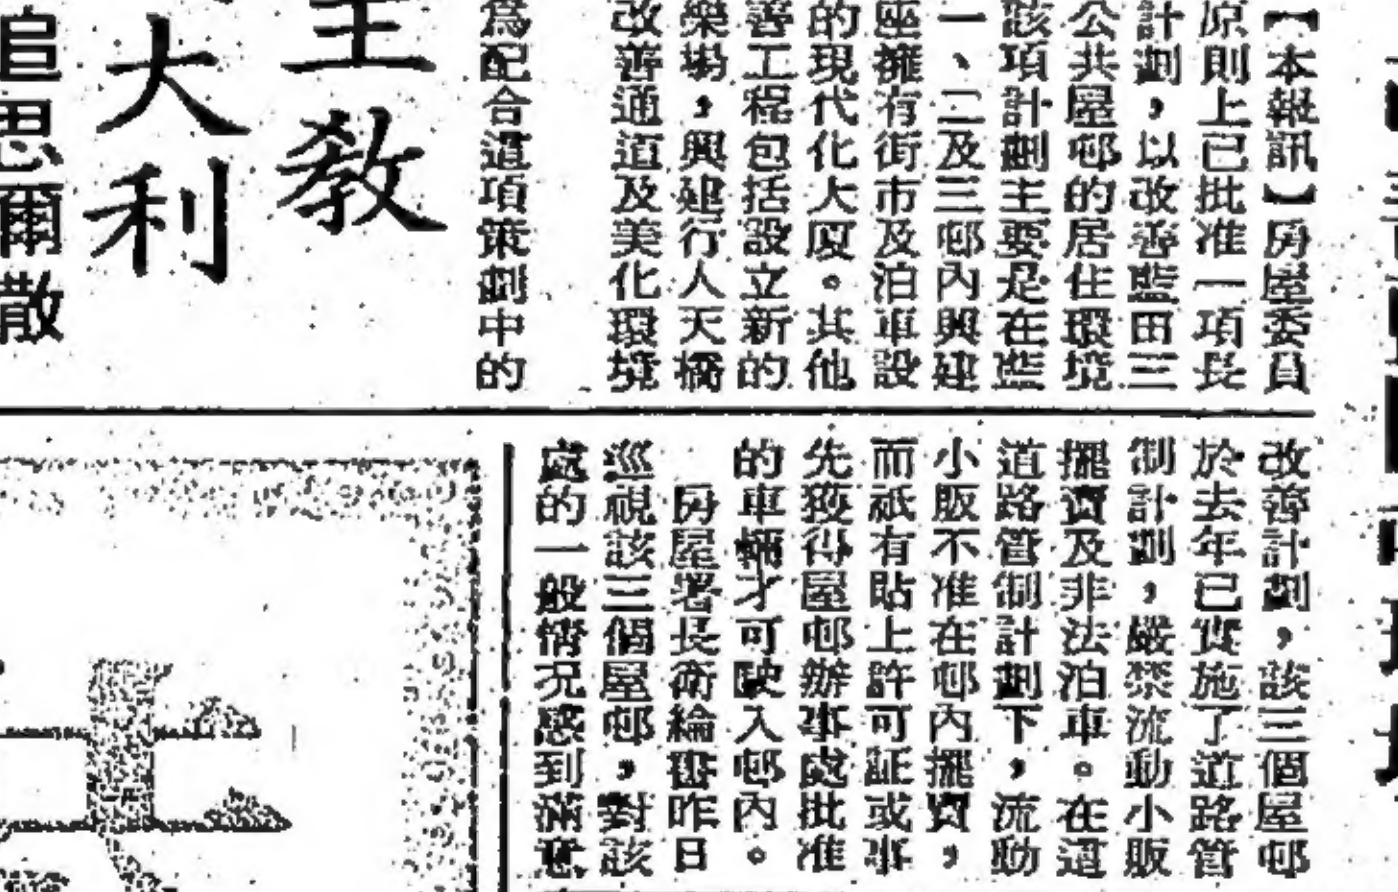 【本報訊】房屋委員
原則上已批准一項長
計劃，以改善藍田三
公共屋邨的居住環境
該項計劃主要是在藍
一、二及三邨內興建
座擁有街市及泊車設
的現代化大厦。其他
善工程包括設立新的
樂場，興建行人天橋
改善通道及美化環境
為配合這項策劃中的
改善計劃，該三個屋邨
於去年已實施了道路管
制計劃，嚴禁流動小販
擺賣及非法泊車。在這
道路管制計劃下，流動
小販不准在邨內擺賣，
而祇有貼上許可証或事
先獲得屋邨辦事處批准
的車輛才可駛入邨內。
房屋署長衛綸書昨日
巡視該三個屋邨，對該
處的一般情况感到滿意
主教
大利
追思爾撒